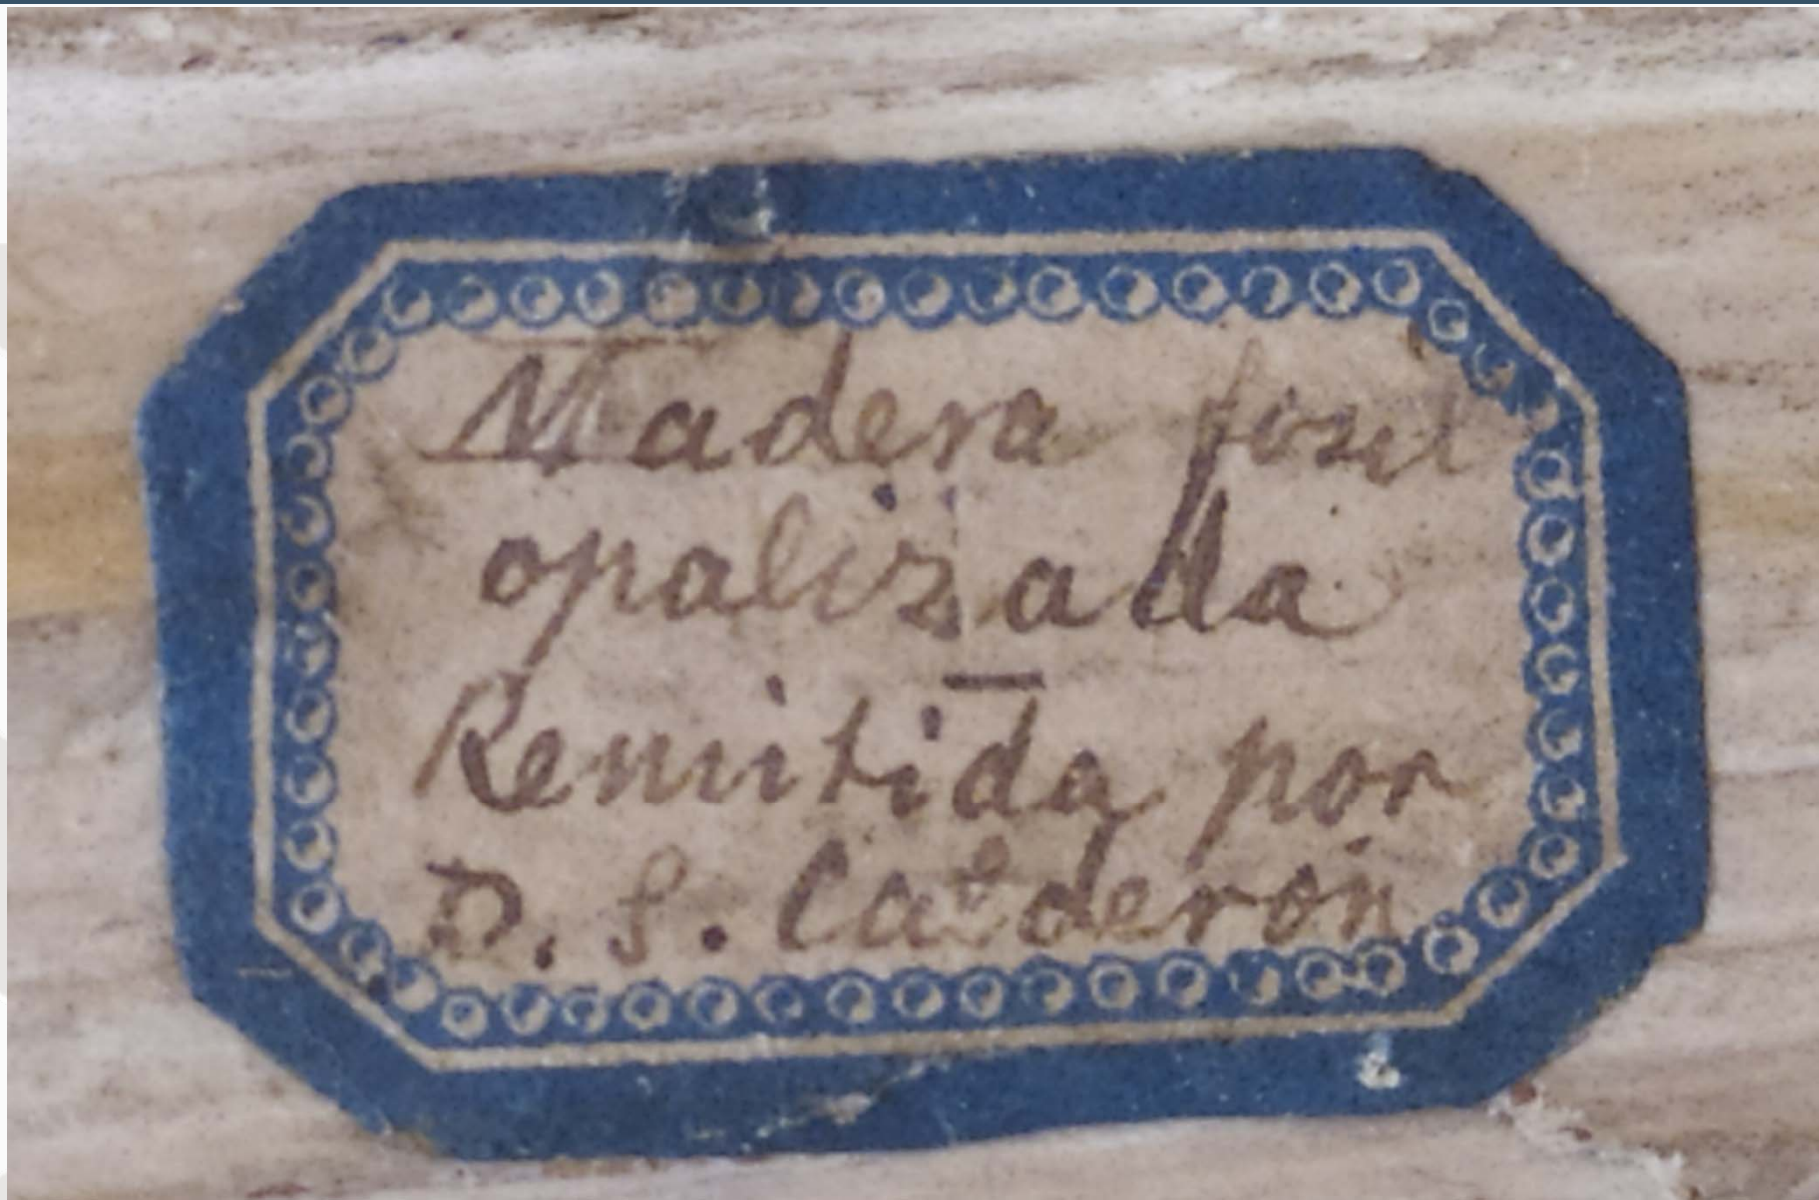 Madera fosil
opalizada
Remitida por
D. S. Calderón